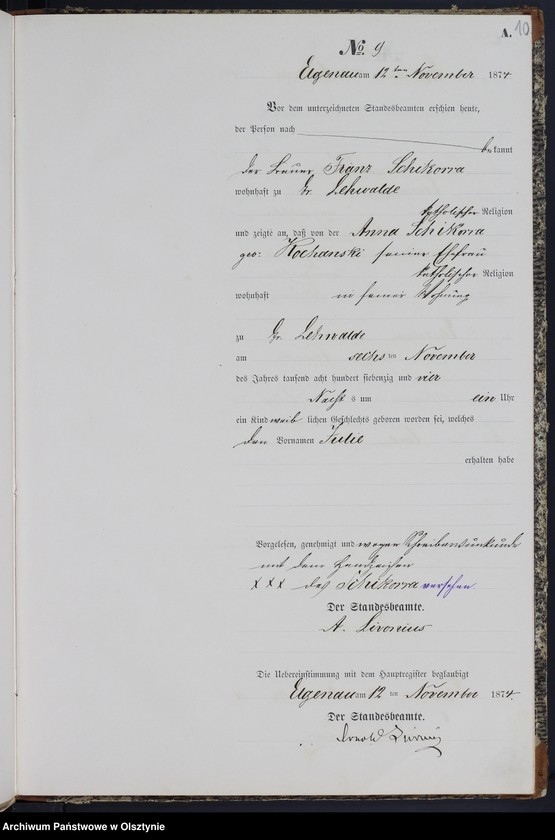 A. 10
No. 9
Elgenau am 12 ten November 1874
Vor dem unterzeichneten Standesbeamten erschien heute,
der Person nach bekannt
der Franz Schikorra
wohnhaft zu Gr. Lehwalde
katholischer Religion
und zeigte an, daß von der Anna Schikorra
geb: Kochanski seiner Ehefrau
katholischer Religion
wohnhaft in seiner Wohnung
zu Gr. Lehwalde
am sechs ten November
des Jahres tausend acht hundert siebenzig und vier
Nacht s um ein Uhr
ein Kind weib lichen Geschlechts geboren worden sei, welches
den Vornamen Julie
erhalten habe
Vorgelesen, genehmigt und wegen Schreibensunkunde
mit dem Handzeichen
XXX des Schikorra versehen.
Der Standesbeamte.
A. Livonius
Die Uebereinstimmung mit dem Hauptregister beglaubigt
Elgenau am 12 ten November 1874.
Der Standesbeamte.
Archiwum Państwowe w Olsztynie